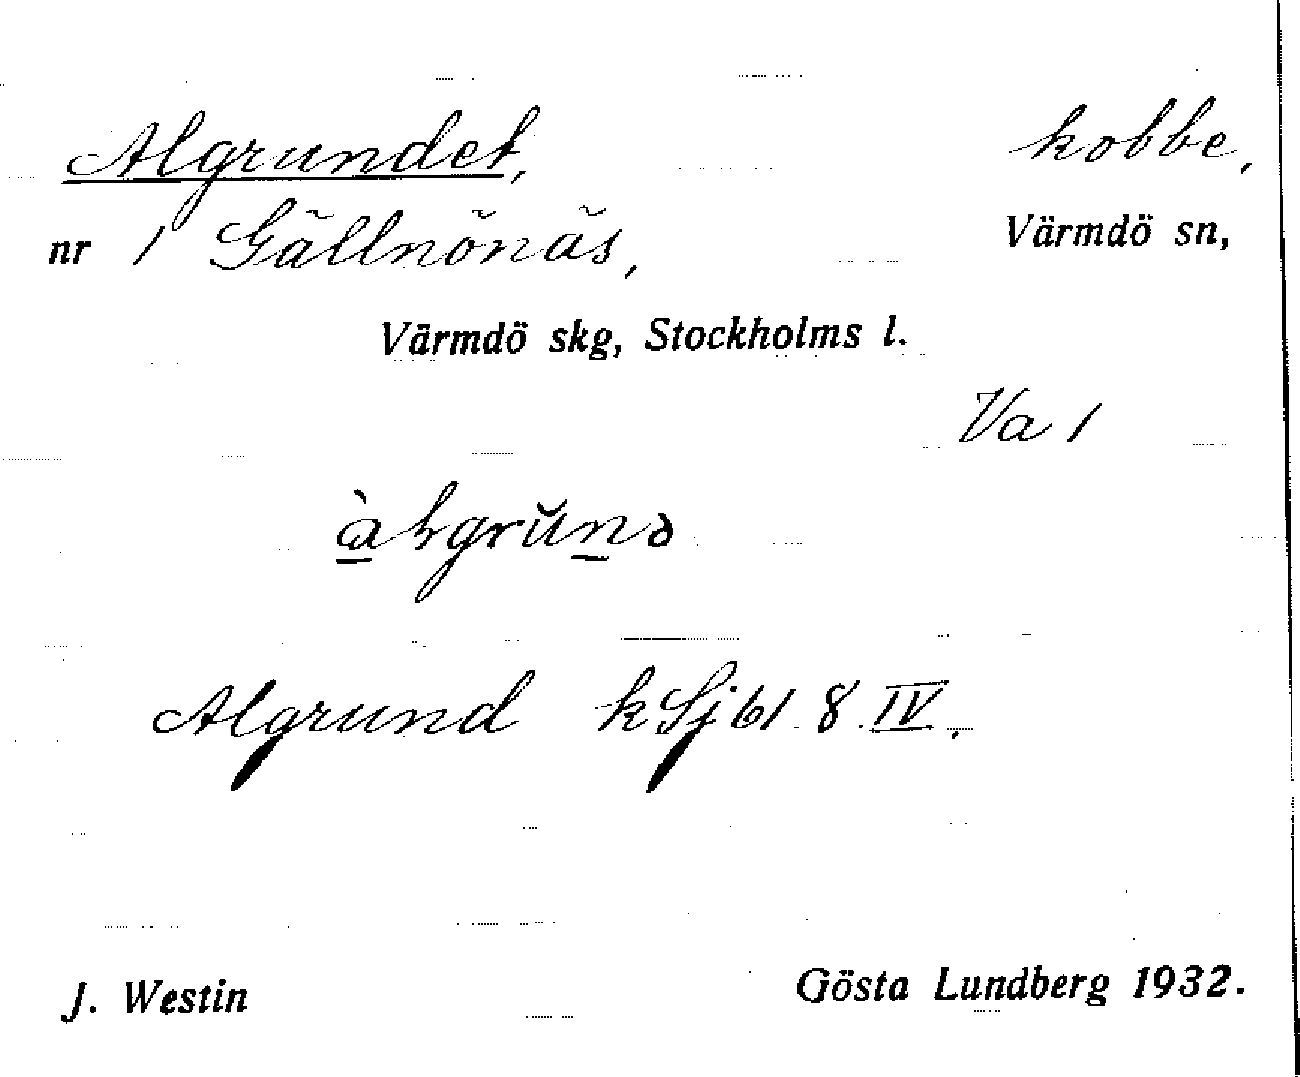 Algrundet, kobbe,
nr 1 Gällnönäs, Värmdö sn,
Värmdö skg, Stockholms l.
Va 1
Algrund kSj 61 8 IV.
J. Westin Gösta Lundberg 1932.